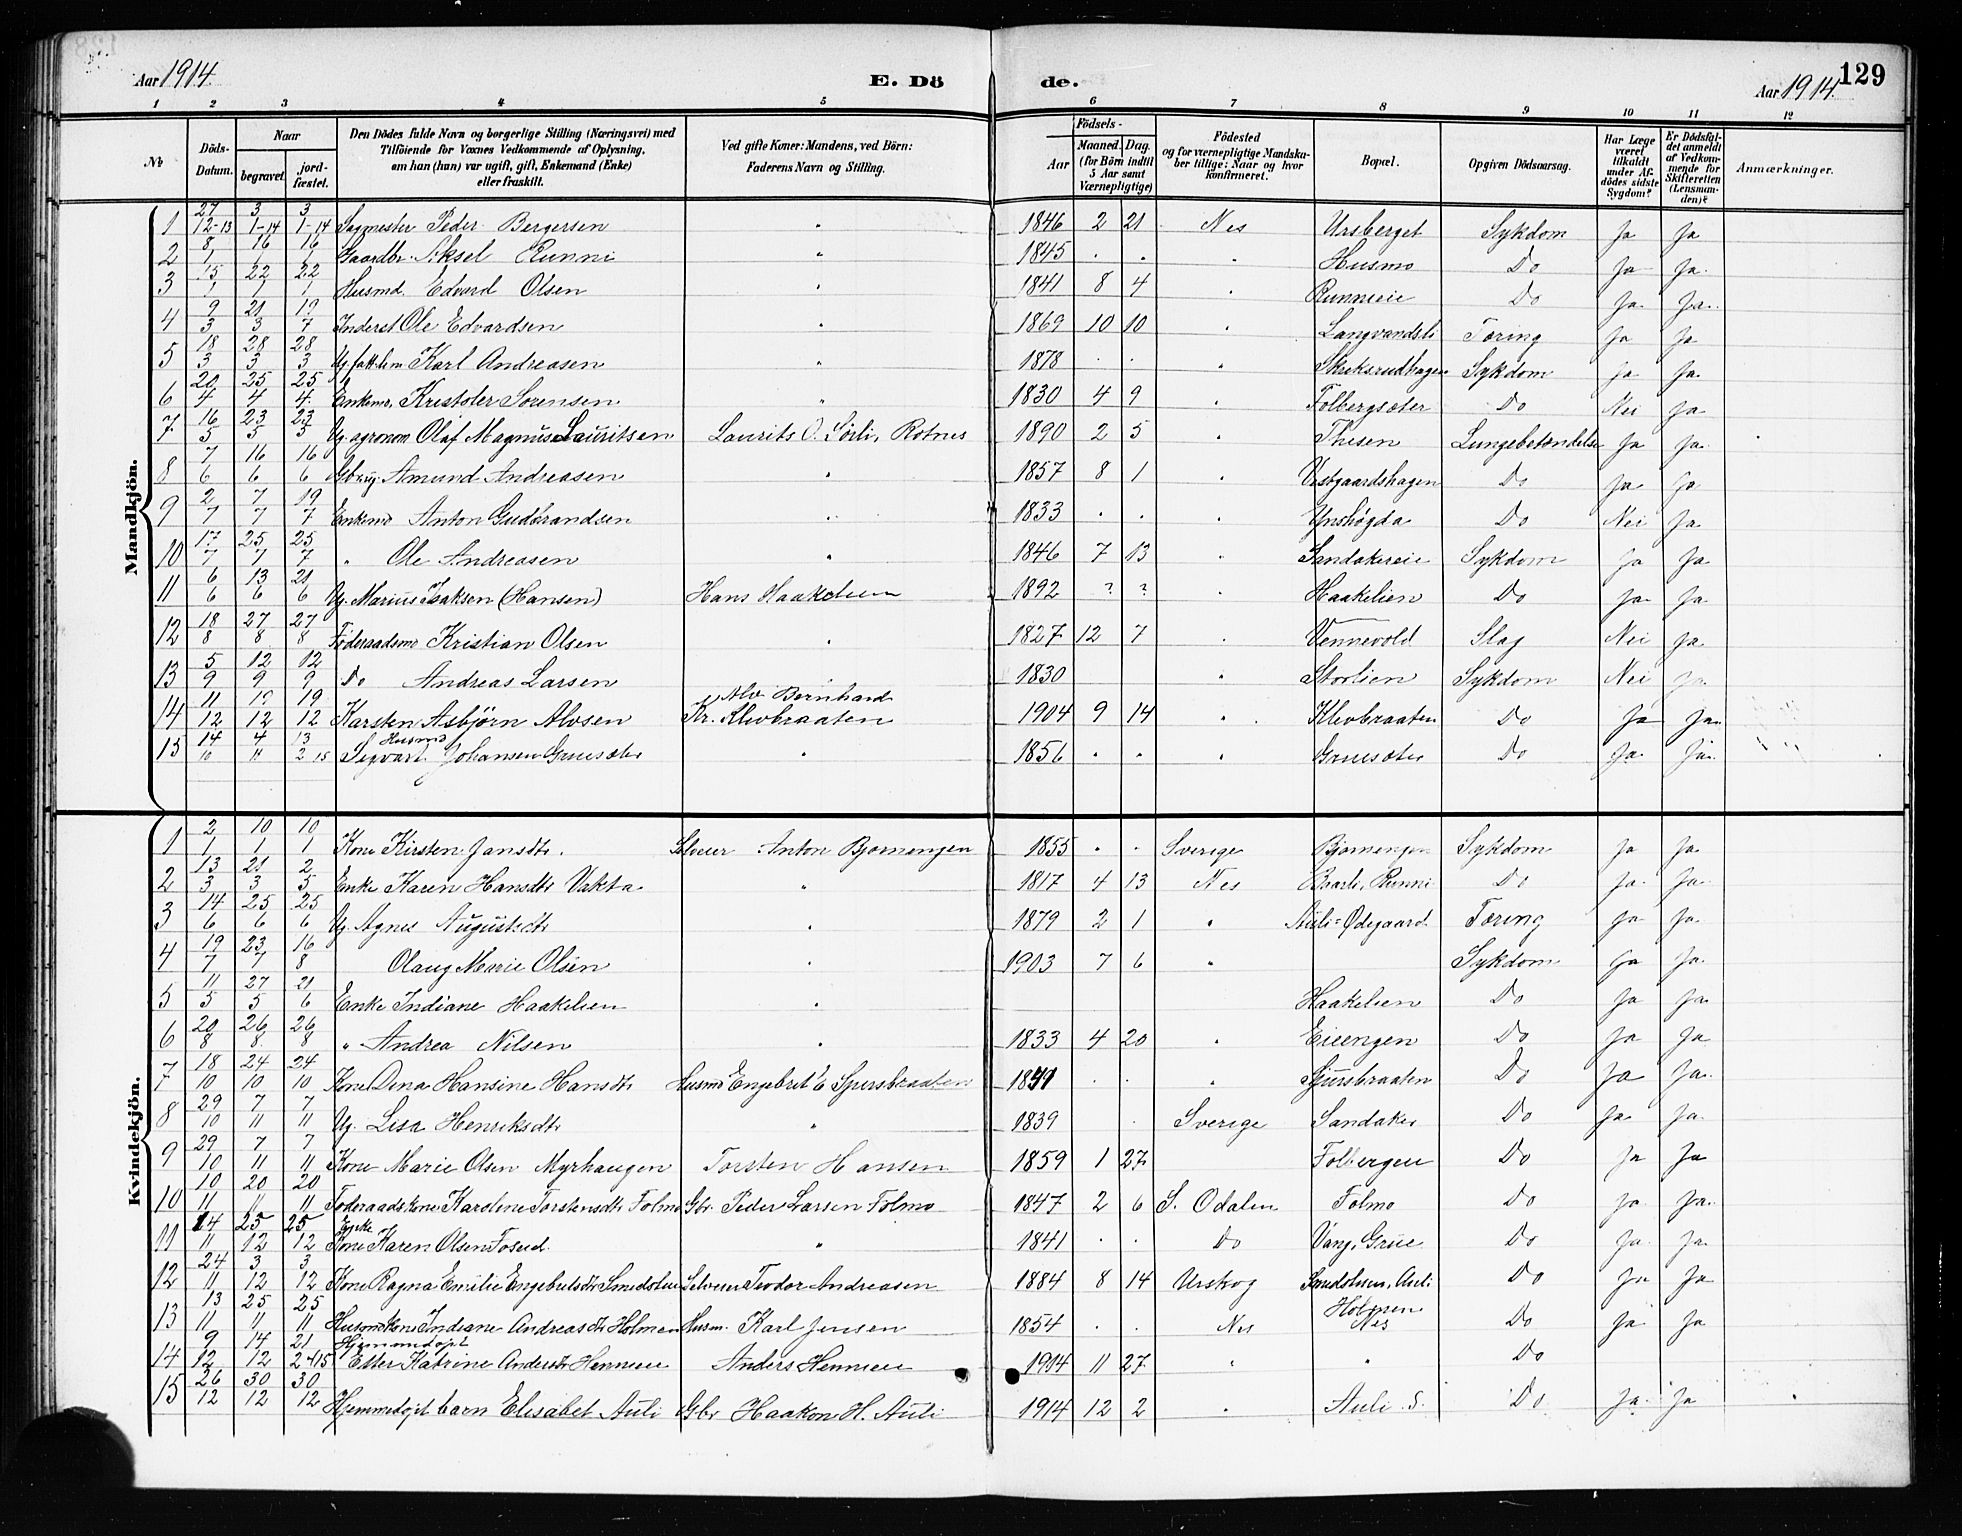 Aar 1914. E. Dö de. Aar 1914. 129
1 2 3 4 5 6 7 8 9 10 11 12
No Döds-Datum. Naar begravet. jord-fæstet. Den Dödes fulde Navn og borgerlige Stilling (Næringsvei) med Tilföiende for Voxnes Vedkommende af Oplysning, om han (hun) var ugift, gift, Enkemand (Enke) eller fraskilt. Ved gifte Koner: Mandens, ved Börn: Faderens Navn og Stilling. Födsels- Aar Maaned. Dag. (for Börn indtil 5 Aar samt Værnepligtige) Födested og for værnepligtige Mandska-ber tillige: Naar og hvor konfirmeret. Bopæl. Opgiven Dödsaarsag. Har Læge været tilkaldt under Af-dödes sidste Sygdom? Er Dödsfal-det anmeldt af Vedkom-mende for Skifteretten (Lensman-den)? Anmærkninger.
Mandkjön.
1 27/12-13 3/1-14 3/1-14 Sagmester Peder Bergersen " 1846 2 21 Nes Ursberget Sykdom Ja Ja
2 8/1 16/1 16/1 Gaardbr. Aksel Runni " 1845 . . " Husmo Do Ja Ja.
3 15/1 22/1 22/1 Husmd. Edvard Olsen " 1841 8 4 " Runnieie Do Ja. Ja.
4 9/3 21/3 19/7 Inderst Ole Edvardsen " 1869 10 10 " Langvandsli Tæring Ja Ja
5 18/3 28/3 28/3 Ug. fatt.lem Karl Andreasen " 1878 . . " Skuksrudhagen Sykdom Ja Ja.
6 20/4 25/4 25/4 Enkemd. Kristofer Sørensen " 1830 4 9 " Folbergsæter Do Nei Ja
7 16/5 23/5 23/5 Ug. agronom Olaf Magnus Lauritsen Laurits O. Sörli, Rotnes 1890 2 5 " Thesen Lungebetændelse Ja Ja
8 7/6 16/6 16/6 Gbrug. Amund Andreasen " 1857 8 1 " Vestgaardshagen Do Ja Ja
9 2/7 7/7 19/7 Enkemd Anton Gudbrandsen " 1833 . . " Ynshøgda Do Nei Ja
10 17/7 25/7 25/7 " Ole Andreasen " 1846 7 13 " Sandakereie Sykdom Ja Ja
11 6/6 13/6 21/6 Ug. Marius Isaksen (Hansen) Hans Haakelien 1892 ? ? " Haakelien Do Ja Ja
12 18/8 27/8 27/8 Föderaadsmd Kristian Olsen " 1827 12 7 " Vennevold Slag Nei Ja
13 5/9 12/9 12/9 Do Andreas Larsen 1830 " Storlien Sykdom Nei Ja
14 11/12 19/12 19/12 Karsten Asbjörn Alvsen Alv Bernhard Kr. Klevbraaten 1904 9 14 " Klevbraaten Do Ja Ja
15 14/10 4/11 13/2 15 Husmd Segvart Johansen Gruesæter " 1856 . . " Gruesæter Do Ja Ja.
Kvindekjön.
1 2/1 10/1 10/1 Kone Kirsten Jansdtr. Selveier Anton Bjørnengen 1855 . . Sverige Bjørnengen Sykdom Ja Ja
2 13/3 21/3 2/5 Enke Karen Hansdtr Vakta " 1817 4 13 Nes Baarli, Runni Do Ja. Ja.
3 14/6 25/6 25/6 Ug. Agnes Augustsdtr " 1879 2 1 " Auli=Ødegaard Tæring Ja Ja
4 19/7 23/7 16/8 Olaug Marie Olsen " 1903 7 6 " Sykdom Ja Ja.
5 11/5 27/5 21/6 Enke Indiane Haakelien " Haakelien Do Ja Ja
6 20/8 26/8 26/8 " Andrea Nilsen " 1833 4 20 " Eieengen Do Ja Ja
7 18/10 24/10 24/10 Kone Dena Hansine Hansdtr Husmd Engebret E Spersbraaten 1841 . . " Sjursbraaten Do Ja Ja.
8 29/10 7/11 7/11 Ug. Lisa Henriksdtr " 1839 . Sverige Sandaker Do Ja Ja.
9 29/10 7/11 7/11 Kone Marie Olsen Myrhaugen Torsten Hansen 1859 1 27 Folbergeie Do Ja Ja
10 10/11 20/11 20/11 Föderaadskone Karoline Torstensdtr Folmo Gbr. Peder Larsen Folmo 1847 2 6 S. Odalen Folmo Do Ja Ja.
11 14/11 25/12 25/12 Enke Kone Karen Olsen Fosud. " 1841 . . Do Vang, Grue Do Ja. Ja.
12 24/11 3/12 3/12 Kone Ragna Emilie Engebretsdtr Smedshuen Selveier Teodor Andreasen 1884 8 14 Urskog Smedshuen, Auli Do Ja Ja
13 13/11 25/11 25/11 Husmdkone Indiane Andreasdtr Holmen Husm. Karl Jensen 1854 . . Nes Holmen Nes Do Ja Ja
14 9/12 14/12 21/2-15 Hjemmedøpt Ester Katrine Andersdtr Hennieie Anders Hennieie 1914 11 27 " " Do
15 26/12 30/12 30/12 Hjemmedøpt barn Elisabet Auli Gbr Haakon H. Auli 1914 12 2 " Auli S. Do Ja. Ja